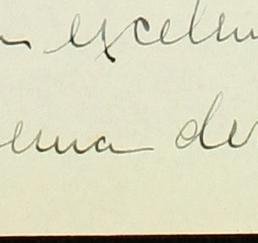 excelen
ema de